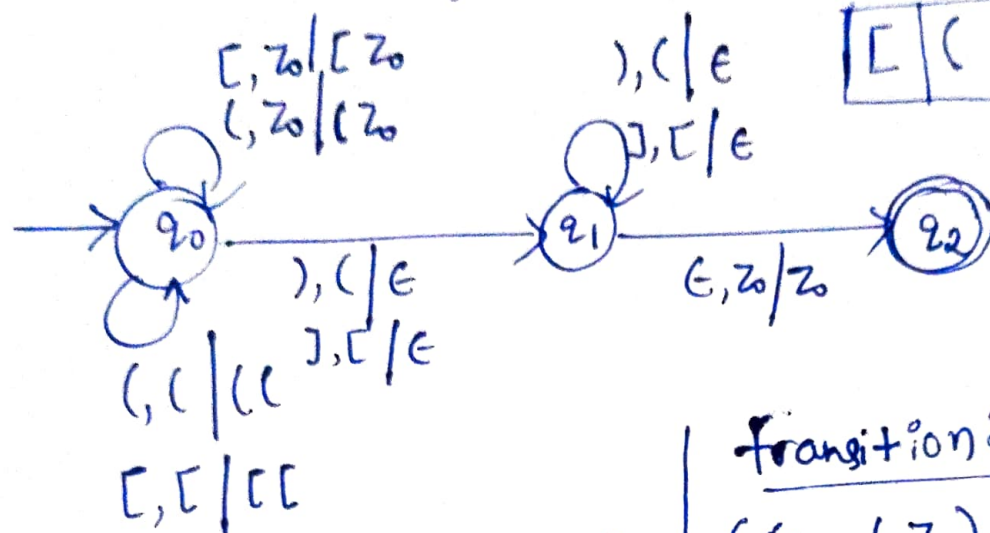 [, z₀ | [ z₀
(, z₀ | ( z₀
), ( | ϵ
], [ / ϵ
[ | (
q₀
q₁
q₂
), ( / ϵ
], [ / ϵ
ϵ, z₀ / z₀
(, ( | ( (
[, [ / [ [
transition: